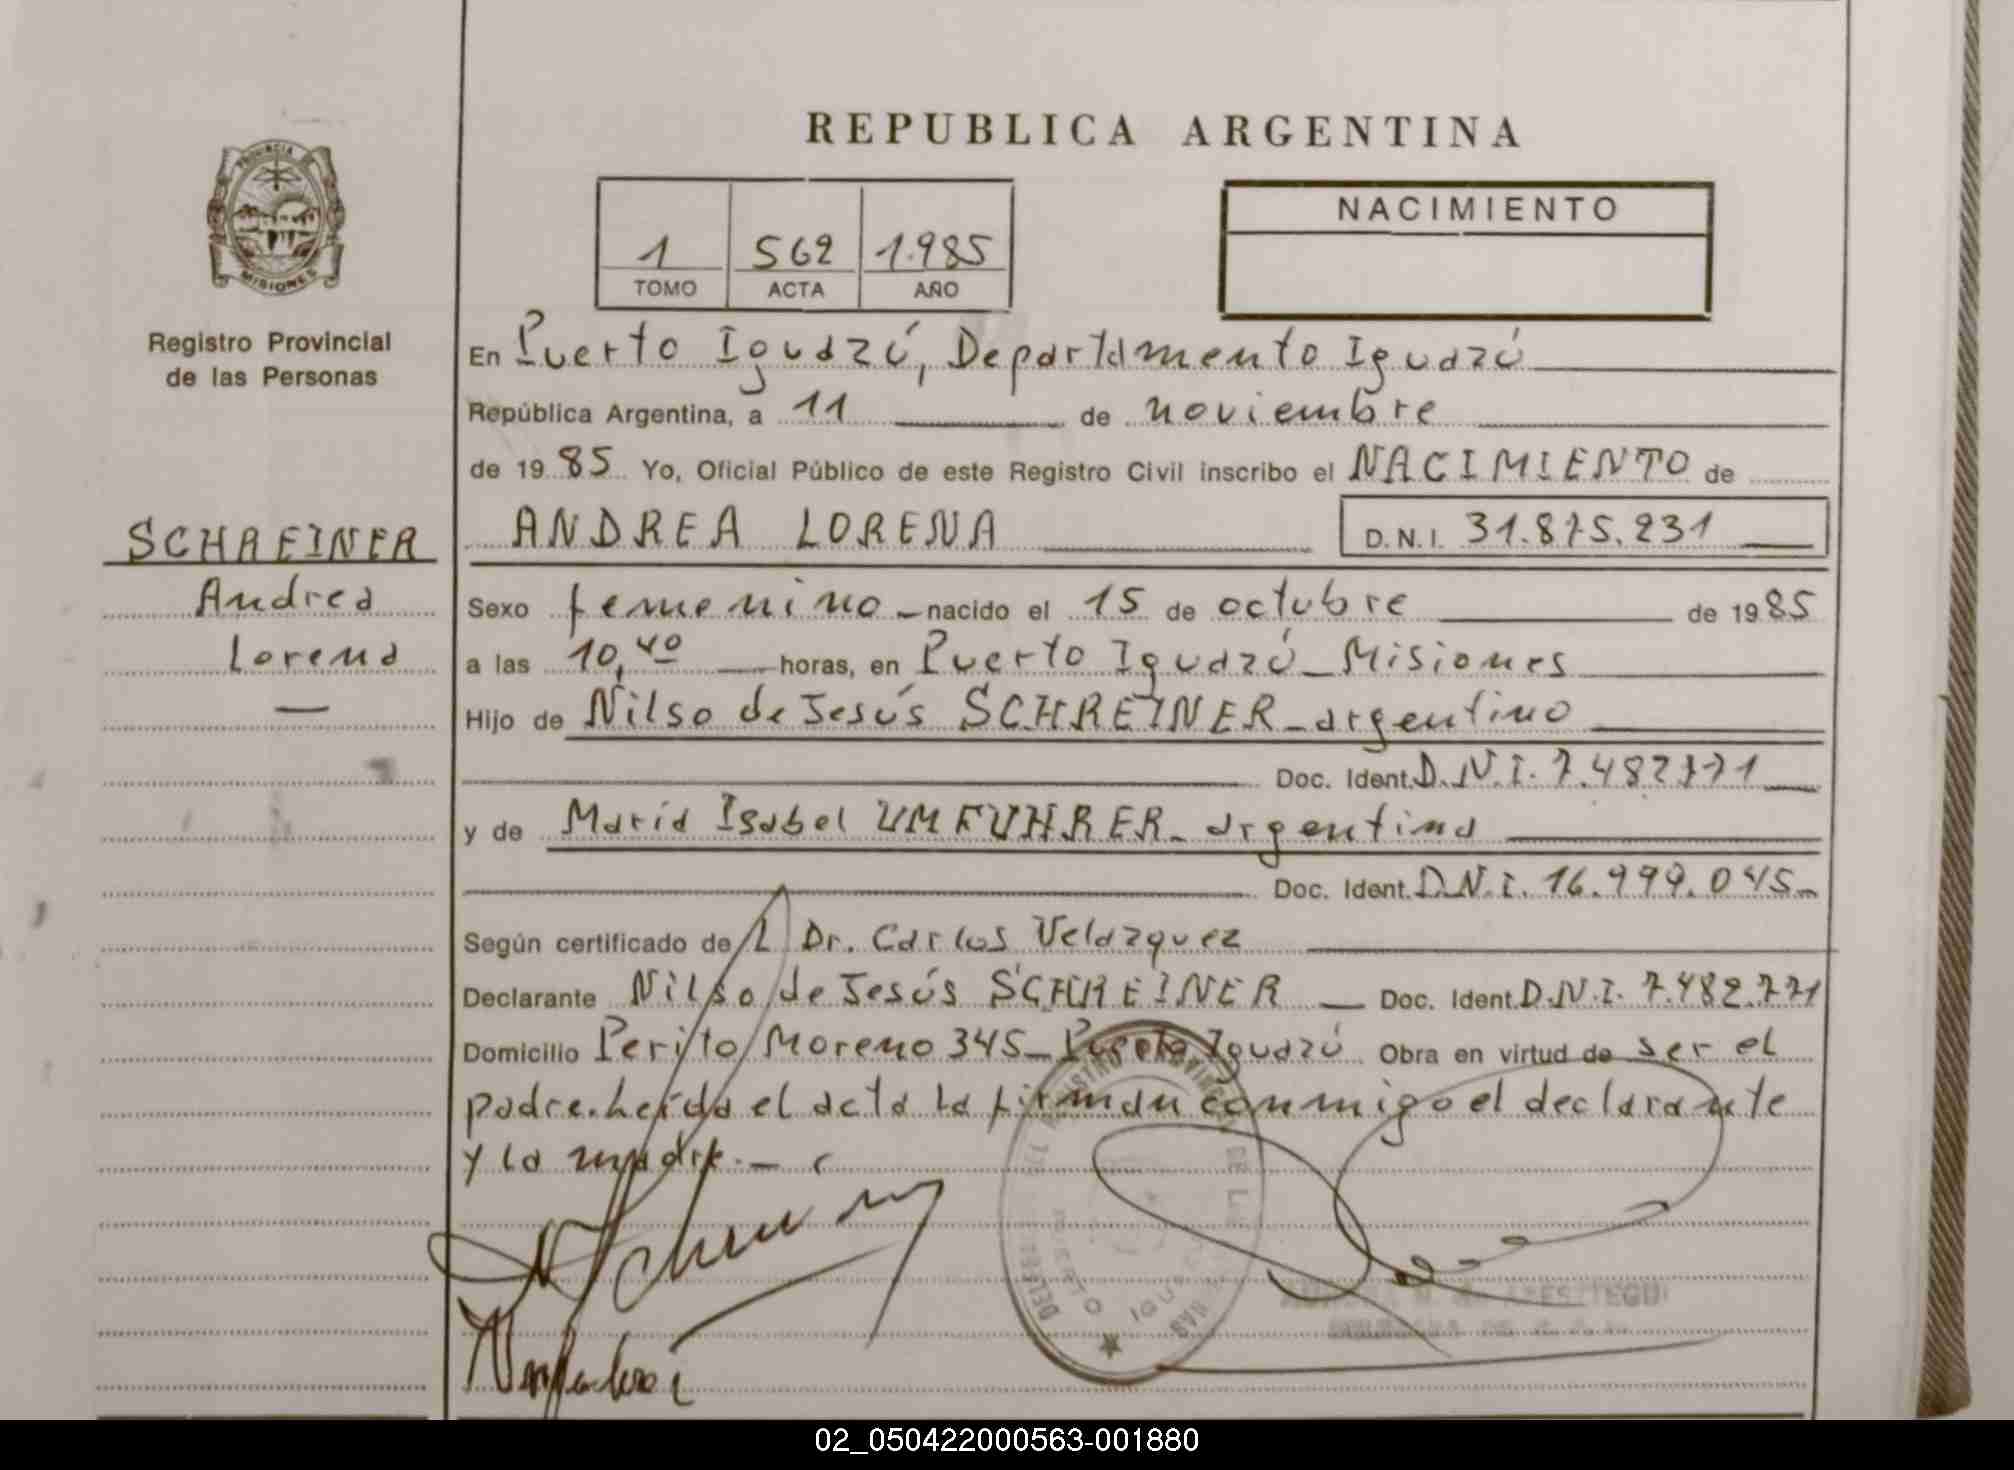 REPUBLICA ARGENTINA
PROVINCIA DE
MISIONES
Registro Provincial
de las Personas
1 562 1.985
TOMO ACTA AÑO
NACIMIENTO
En Puerto Iguazú, Departamento Iguazú
República Argentina, a 11 de noviembre
de 1985 Yo, Oficial Público de este Registro Civil inscribo el NACIMIENTO de
ANDREA LORENA D.N.I. 31.875.231
SCHREINER
Andrea
Lorena
—
Sexo femenino nacido el 15 de octubre de 1985
a las 10,40 horas, en Puerto Iguazú – Misiones
Hijo de Nilso de Jesús SCHREINER – argentino
Doc. Ident. D.N.I. 7.482.771
y de María Isabel UMFUHRER – argentina
Doc. Ident. D.N.I. 16.999.045
Según certificado del Dr. Carlos Velazquez
Declarante Nilso de Jesús SCHREINER Doc. Ident. D.N.I. 7.482.771
Domicilio Perito Moreno 345 – Puerto Iguazú Obra en virtud de ser el
padre. Leída el acta la firman conmigo el declarante
y la madre. –
PUERTO IGUAZU
02_050422000563-001880